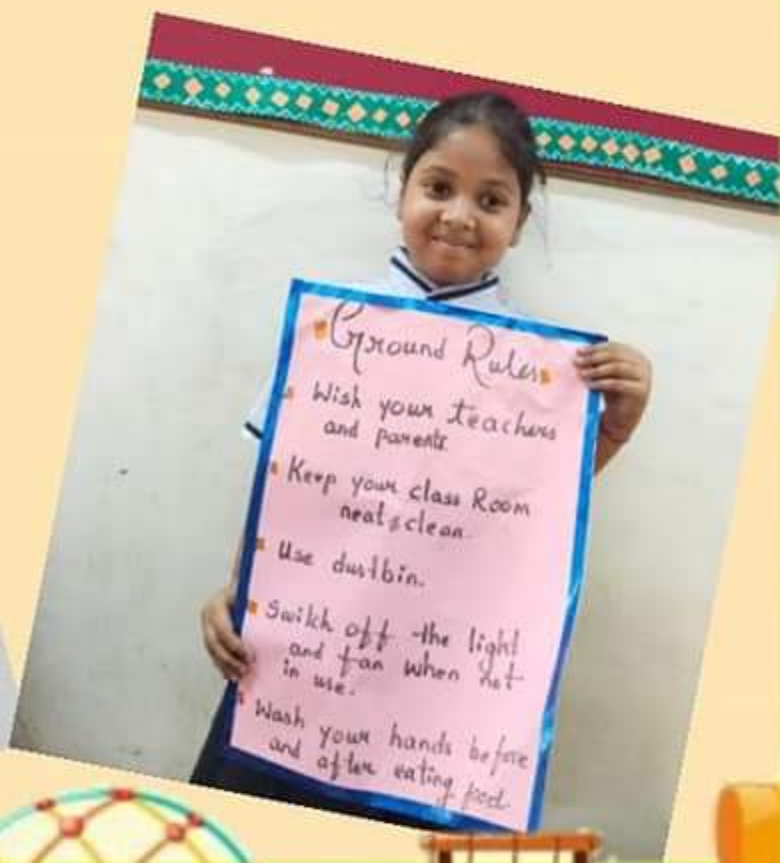 Ground Rules
Wish your teachers
and parents.
Keep your class Room
neat & clean.
Use dustbin.
Switch off the light
and fan when not
in use.
Wash your hands before
and after eating food.